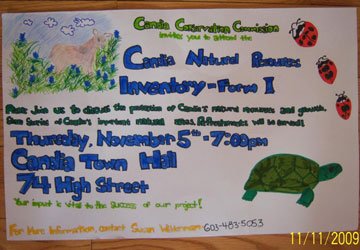 Candia Conservation Commission
invites you to attend the
Candia Natural Resources
Inventory - Form I
Please Join us to discuss the protection of Candia's natural resources and growth.
Share Stories of Candia's important natural areas. Refreshments will be served!
Thursday, November 5th - 7:00pm
Candia Town Hall
74 High Street
Your input is vital to the success of our project!
For More Information, contact Susan 603-483-5053
11/11/2009